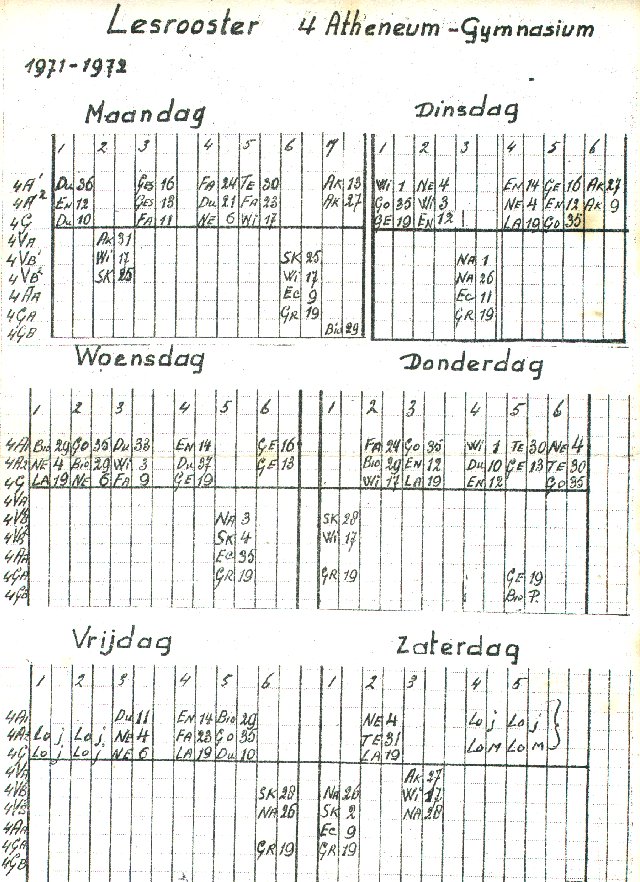 Lesrooster 4 Atheneum - Gymnasium
1971-1972
Maandag
1 2 3 4 5 6 7
4A1 Du 36 Ges 16 Fa 24 Te 30 Ak 13
4A2 En 12 Ges 13 Du 21 Fa 23 Ak 27
4G Du 10 Fa 11 Ne 6 Wi 17
4VA Ak 31
4VB1 Wi 17 SK 25
4VB2 SK 25 Wi 17
4AA Ec 9
4GA GR 19
4GB Bio 29
Dinsdag
1 2 3 4 5 6
Wi 1 Ne 4 En 14 Ge 16 Ak 27
Go 35 Wi 3 Ne 4 En 12 Ak 9
GE 19 En 12 LA 19 Go 35
NA 1
NA 26
Ec 11
GR 19
Woensdag
1 2 3 4 5 6
4A1 Bio 29 Go 35 Du 33 En 14 GE 16
4A2 NE 4 Bio 29 Wi 3 Du 37 GE 13
4G LA 19 NE 6 FA 9 GE 19
4VA
4VB NA 3
4VB SK 4
4AA Ec 35
4GA GR 19
4GB
Donderdag
1 2 3 4 5 6
FA 24 Go 35 Wi 1 TE 30 NE 4
Bio 29 En 12 Du 10 GE 13 TE 30
Wi 17 LA 19 En 12 Go 35
SK 28
Wi 17
GR 19 GE 19
Bio P.
Vrijdag
1 2 3 4 5 6
4A1 Du 11 En 14 Bio 29
4A2 Lo j Lo j Ne 4 FA 23 Go 35
4G Lo j Lo j NE 6 LA 19 Du 10
4VA
4VB SK 28
4VB NA 26
4AA
4GA GR 19
4GB
Zaterdag
1 2 3 4 5
NE 4 Lo j Lo j
TE 31
LA 19 Lo M Lo M
Ak 27
NA 26 Wi 17
SK 2 NA 28
Ec 9
GR 19